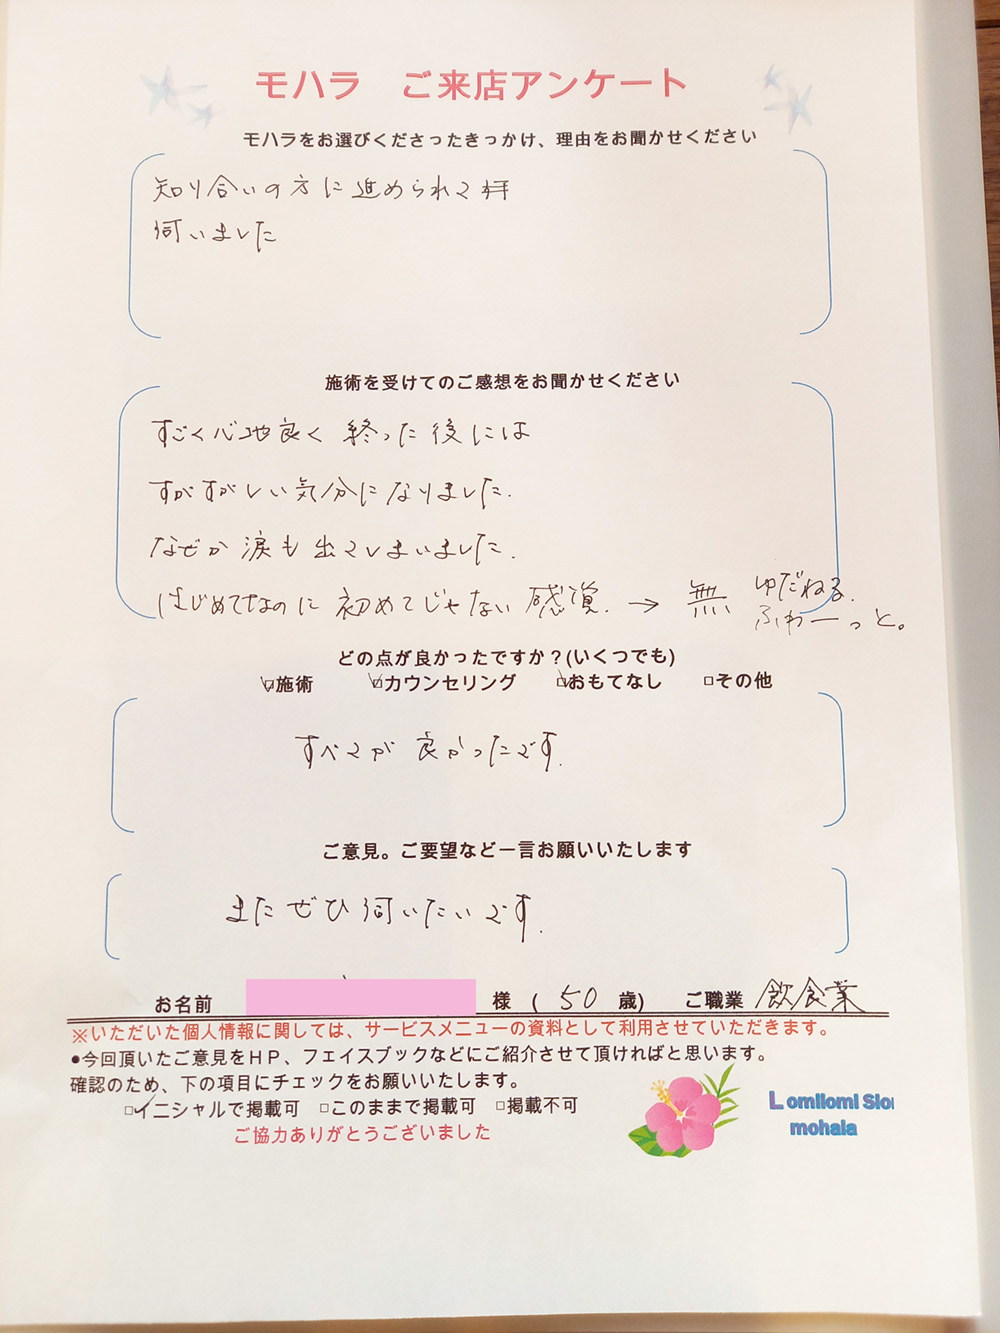 モハラ　ご来店アンケート
モハラをお選びくださったきっかけ、理由をお聞かせください
知り合いの方に進められて拝
伺いました
施術を受けてのご感想をお聞かせください
すごく心地良く終った後には
すがすがしい気分になりました.
なぜか涙も出てしまいました.
はじめてなのに初めてじゃない感覚. → 無 ゆだねる.
ふわーっと。
どの点が良かったですか？(いくつでも)
☑施術 ☑カウンセリング ☑おもてなし □その他
すべてが良かったです.
ご意見。ご要望など一言お願いいたします
またぜひ伺いたいです.
お名前 様 ( 50 歳) ご職業 飲食業
※いただいた個人情報に関しては、サービスメニューの資料として利用させていただきます。
●今回頂いたご意見をＨＰ、フェイスブックなどにご紹介させて頂ければと思います。
確認のため、下の項目にチェックをお願いいたします。
☑イニシャルで掲載可 □このままで掲載可 □掲載不可
ご協力ありがとうございました
Lomilomi Slo
mohala